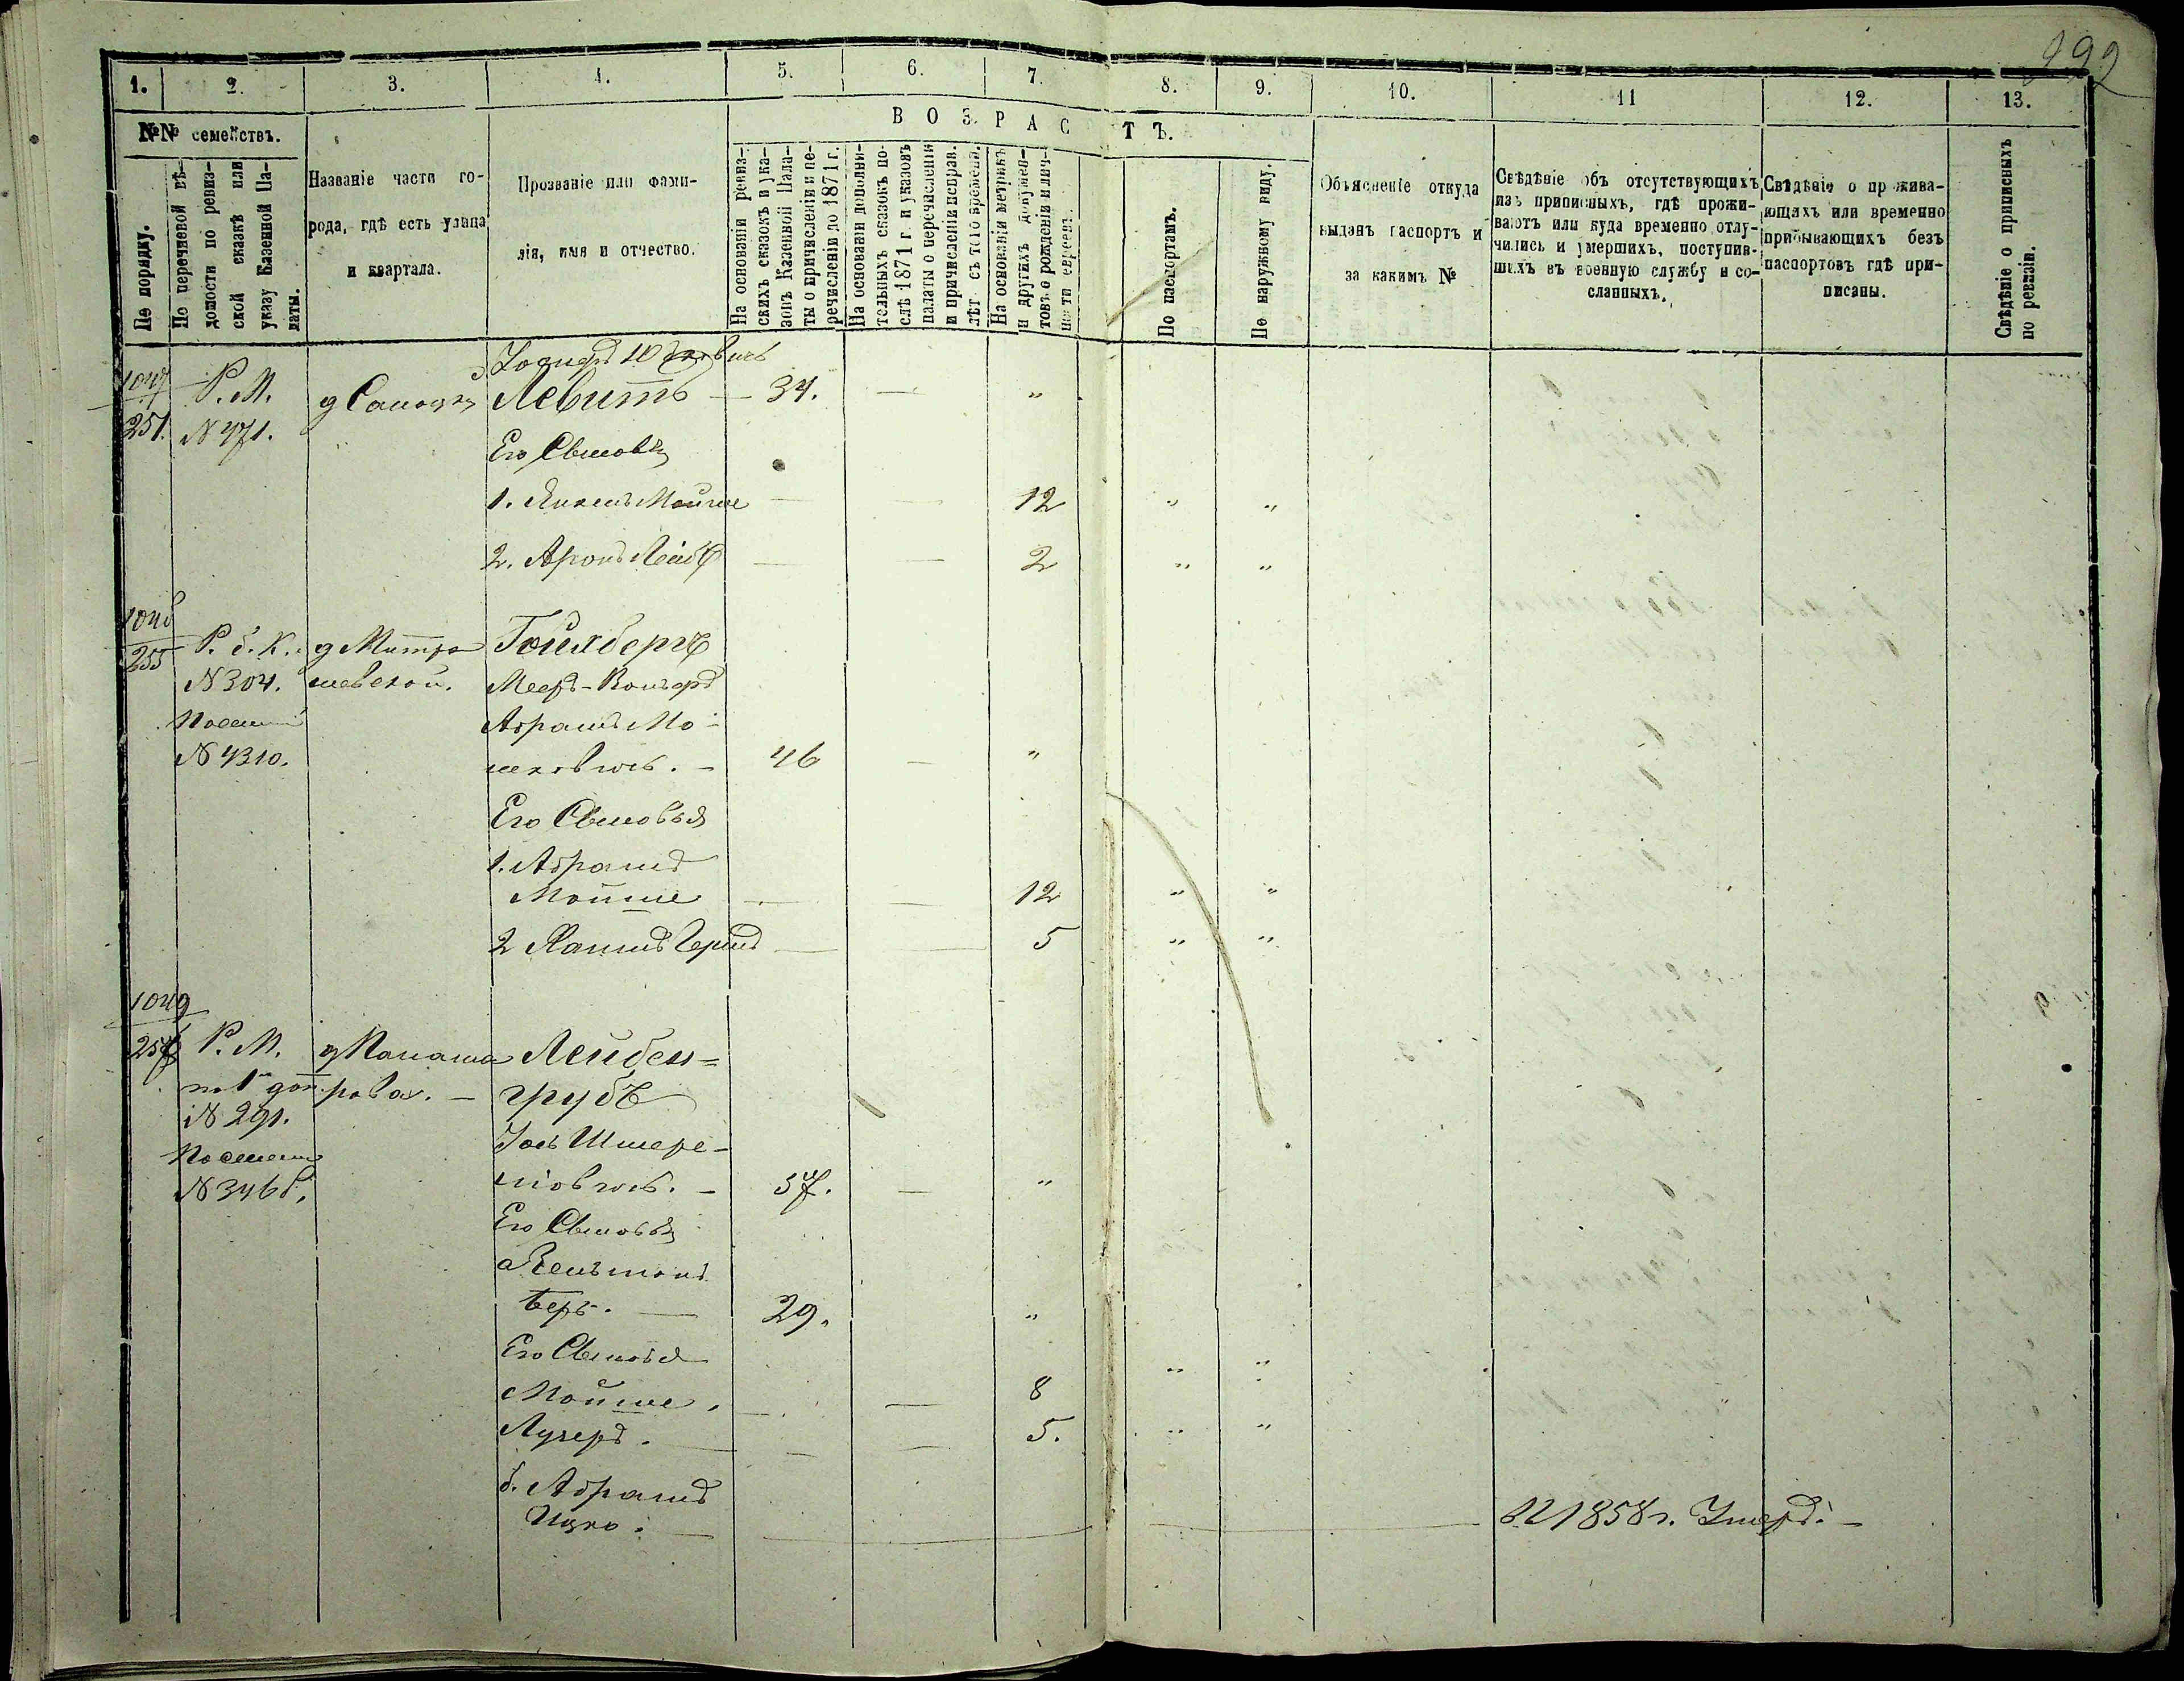 292
1. 2. 3. 4. 5. 6. 7. 8. 9. 10. 11 12. 13.
№№ семействъ.
По порядку.
По перечневой вѣ-
домости по ревиз-
ской сказкѣ или
указу Казенной Па-
латы.
Названіе части го-
рода, гдѣ есть улица
и квартала.
Прозваніе или фами-
лія, имя и отчество.
ВОЗРАСТЪ.
На основаніи ревиз-
скихъ сказокъ и ука-
зовъ Казенной Пала-
ты о причисленіи и пе-
речисленіи до 1871 г.
На основаніи дополни-
тельныхъ сказокъ по-
слѣ 1871 г. и указовъ
палаты о перечисленіи
и причисленіи исправ.
лѣт съ того времени.
На основаніи метрикъ
и другихъ докумен-
товъ о рожденіи и лич-
ности евреевъ.
По паспортамъ.
По наружному виду.
Объясненіе откуда
выданъ паспортъ и
за какимъ №
Свѣдѣніе объ отсутствующихъ
изъ приписныхъ, гдѣ прожи-
ваютъ или куда временно отлу-
чились и умершихъ, поступив-
шихъ въ военную службу и со-
сланныхъ.
Свѣдѣніе о прожива-
ющихъ или временно
прибывающихъ безъ
паспортовъ гдѣ при-
писаны.
Свѣдѣніе о приписныхъ
по ревизіи.
1047
251.
Р. М.
N 471.
Левитъ — 34. — "
Его Сыновья
1. Мойше — — 12 " "
2. Аронъ Лейб — — 2 " "
1048
255
Р. б. К.
N 304.
N 4310.
д Митро
шевской.
Гойхбергъ
Мееръ-
Абрамъ Мо-
шковичъ. — 46 — "
Его Сыновья
1. Абрамъ
Мойше — — 12 " "
2 Хаимъ Гершъ — — 5 " "
1049
257
Р. М.
по 1й доп.
N 291.
N 3468.
Лейбен=
грубъ
Іось Шмере-
ліовичъ. — 57. — "
Его Сыновья
а
Беръ. — 29. "
Его Сыновья " "
Мойше. — — 8
Лузеръ. — — 5. " "
б. Абрамъ
Ицко. — — Въ 1858 г. Умеръ. —